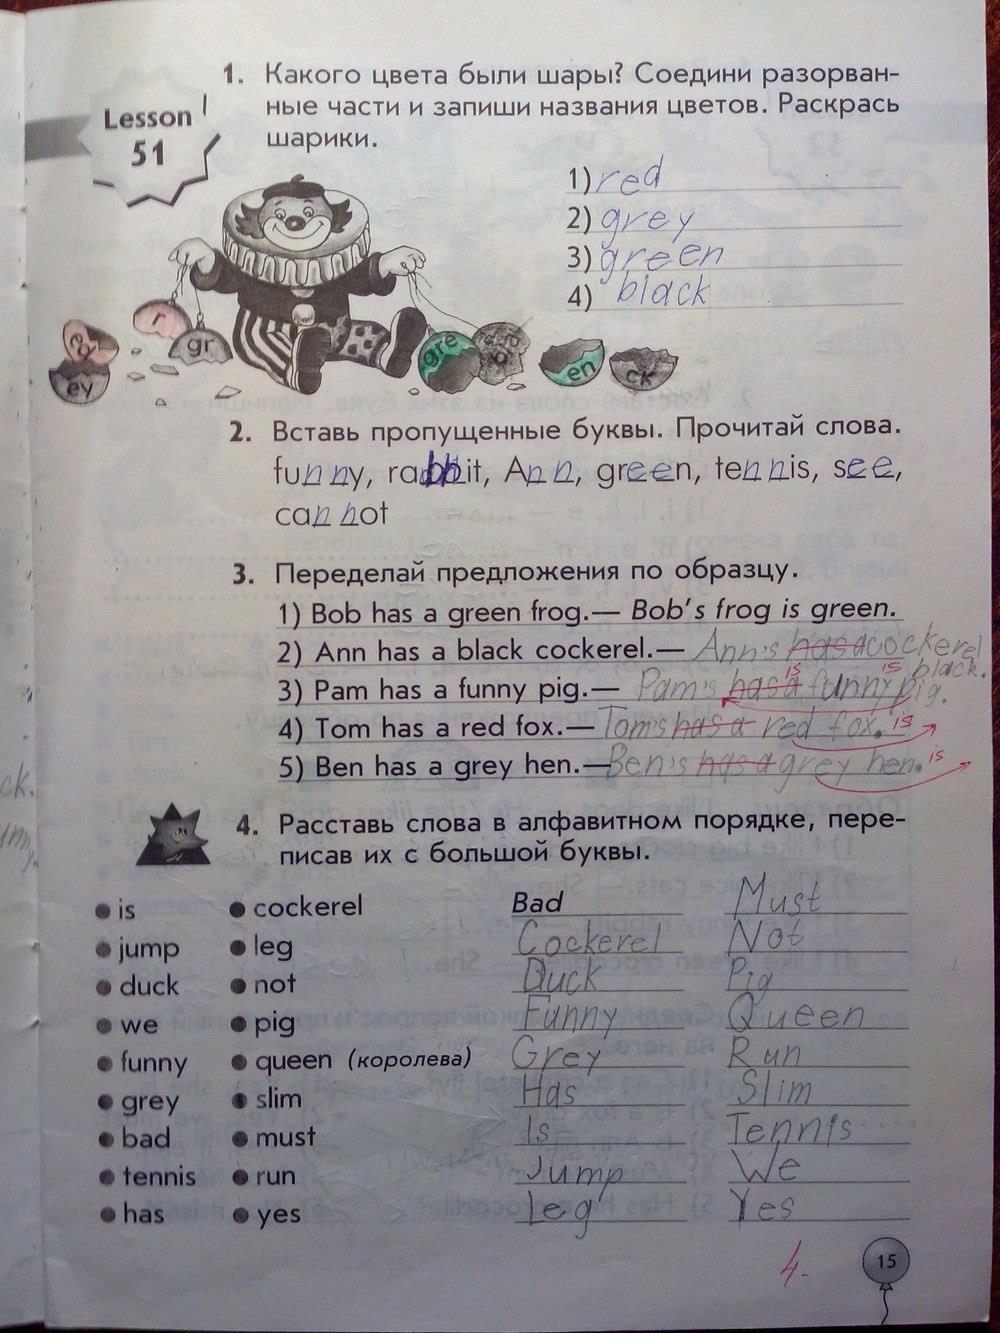 Lesson
51
1. Какого цвета были шары? Соедини разорван-
ные части и запиши названия цветов. Раскрась
шарики.
1) red
2) grey
3) green
4) black
r
ed
gr
ey
gre
en
ck
2. Вставь пропущенные буквы. Прочитай слова.
funny, rabbit, Ann, green, tennis, see,
cannot
3. Переделай предложения по образцу.
1) Bob has a green frog.— Bob's frog is green.
2) Ann has a black cockerel.— Ann's has a cockerel
is black.
3) Pam has a funny pig.— Pam's has a is funny pig.
4) Tom has a red fox.— Tom's has a red fox. is
5) Ben has a grey hen.— Ben's has a grey hen. is
4. Расставь слова в алфавитном порядке, пере-
писав их с большой буквы.
is cockerel Bad Must
jump leg Cockerel Not
duck not Duck Pig
we pig Funny Queen
funny queen (королева) Grey Run
grey slim Has Slim
bad must Is Tennis
tennis run Jump We
has yes Leg Yes
4-
15